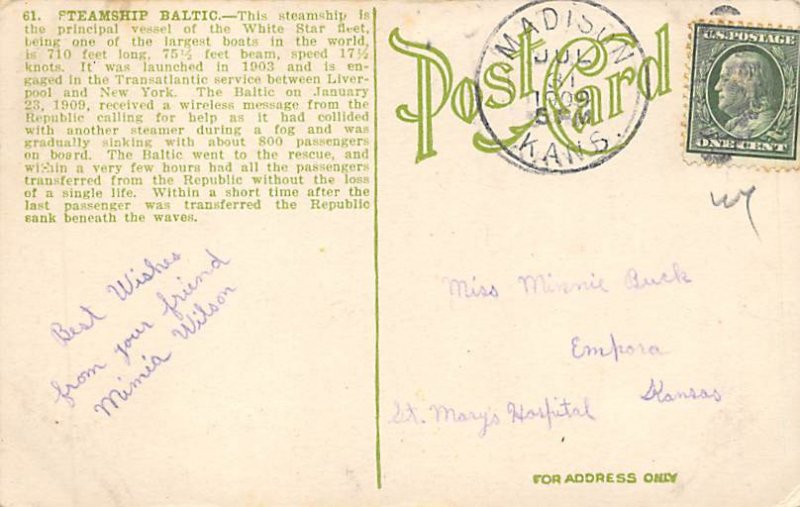 61. STEAMSHIP BALTIC.—This steamship is
the principal vessel of the White Star fleet,
being one of the largest boats in the world,
is 710 feet long, 75½ feet beam, speed 17½
knots. It was launched in 1903 and is en-
gaged in the Transatlantic service between Liver-
pool and New York. The Baltic on January
23, 1909, received a wireless message from the
Republic calling for help as it had collided
with another steamer during a fog and was
gradually sinking with about 800 passengers
on board. The Baltic went to the rescue, and
within a very few hours had all the passengers
transferred from the Republic without the loss
of a single life. Within a short time after the
last passenger was transferred the Republic
sank beneath the waves.
Best Wishes
from your friend
Mimia Wilson
Post Card
MADISON
JUL
1909
5 PM
KANS.
U.S. POSTAGE
ONE CENT
Miss Minnie Buck
Empora
Kansas
St. Mary's Hospital
FOR ADDRESS ONLY